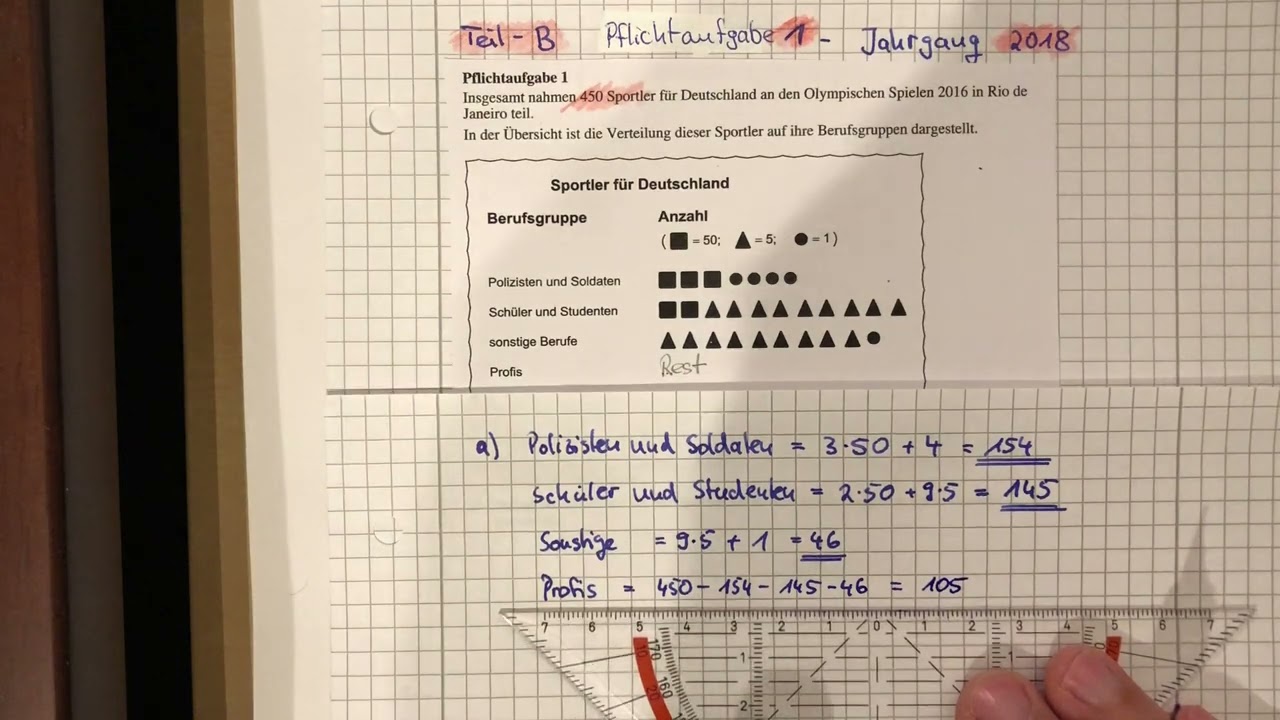 Teil - B Pflichtaufgabe 1 - Jahrgang 2018
Pflichtaufgabe 1
Insgesamt nahmen 450 Sportler für Deutschland an den Olympischen Spielen 2016 in Rio de
Janeiro teil.
In der Übersicht ist die Verteilung dieser Sportler auf ihre Berufsgruppen dargestellt.
Sportler für Deutschland
Berufsgruppe Anzahl
(■ = 50; ▲ = 5; ● = 1)
Polizisten und Soldaten ■■■●●●●
Schüler und Studenten ■■▲▲▲▲▲▲▲▲▲
sonstige Berufe ▲▲▲▲▲▲▲▲▲●
Profis Rest
a) Polizisten und Soldaten = 3·50 + 4 = 154
Schüler und Studenten = 2·50 + 9·5 = 145
Sonstige = 9·5 + 1 = 46
Profis = 450 - 154 - 145 - 46 = 105
7 6 5 4 3 2 1 0 1 2 3 4 5 6 7
1 1
160
20
2